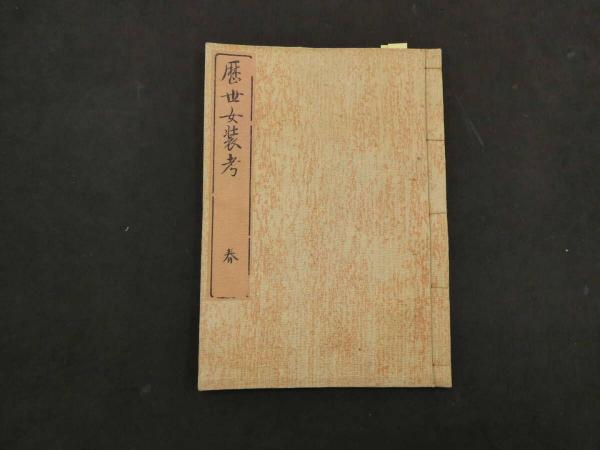 歴世女装考
春